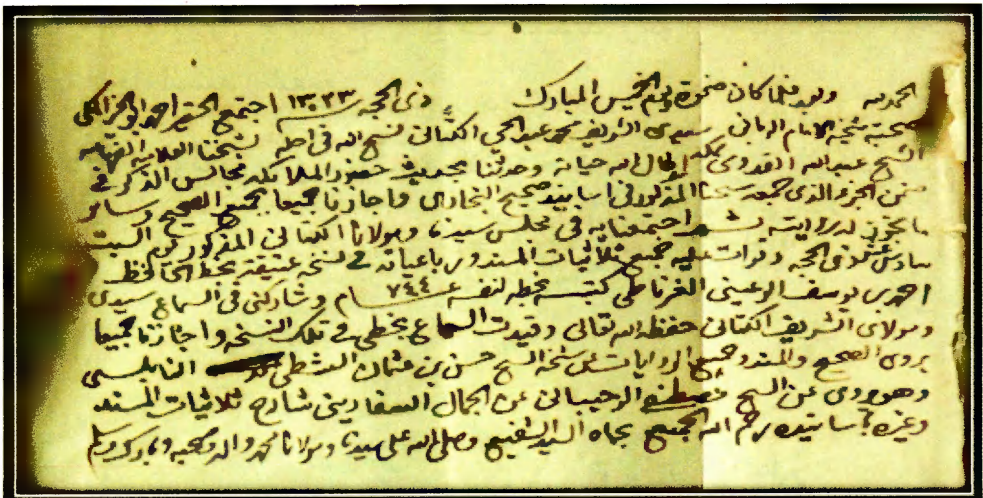 الحمد لله وبعد فلما كان ضحوة يوم الخميس المبارك ذي الحجه سنة ١٣٢٣ اجتمع الحقير احمد ابو الخير المكي
بصحبة شيخه الامام الرباني سيدي الشريف محمد عبد الحي الكتاني فسح الله في اجله بشيخنا العلامة الفهامة
الشيخ عبد الله القدومي بمكة اطال الله حياته وحدثنا بحديث حضور الملائكة مجالس الذكر في
ضمن الجزء الذي جمعه شيخنا المذكور في اسانيد صحيح البخاري واجازنا جميعا بجميع الصحيح وسائر
ما تجوز له روايته ثم اجتمعنا به في مجلس سيدنا ومولانا الكتاني المذكور في السبت
سادس عشر ذي الحجه وقرات عليه جميع ثلاثيات المسند ورباعياته في نسخة عتيقة بخط الحافظ
احمد بن يوسف الرعيني الغرناطي كتبه بخطه لنفسه عام ٧٤٤ وشاركني في السماع سيدي
ومولاي الشريف الكتاني حفظه الله تعالى وقيدت السماع بخطي في تلك النسخة واجازنا جميعا
يروي الصحيح والمسند وجميع الروايات عن شيخه الشيخ حسن بن عثمان الشطي النابلسي
وهو يروي عن الشيخ مصطفى الرحيباني عن الجمال السفاريني شارح ثلاثيات المسند
وغيره باسانيده رحم الله الجميع بجاه السيد الشفيع وصلى الله على سيدنا ومولانا محمد واله وصحبه وبارك وسلم